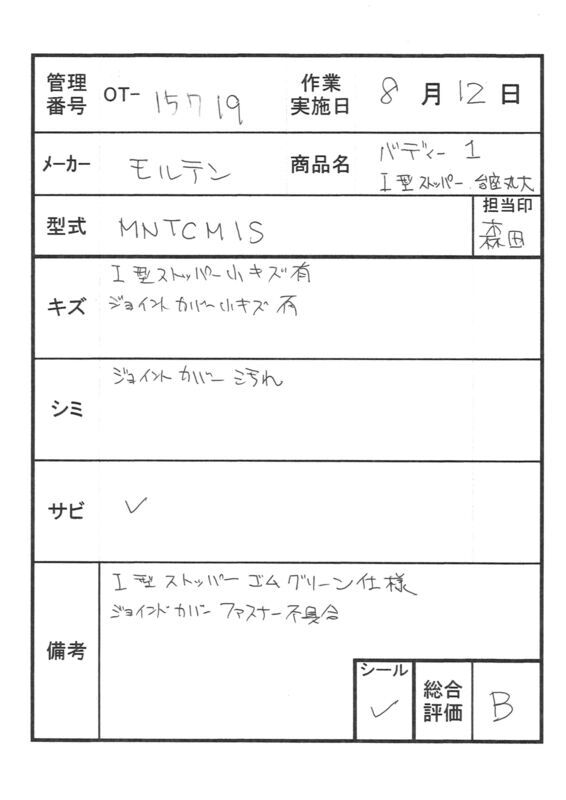 管理番号 OT- 15719 作業実施日 8月12日
メーカー モルテン 商品名 バディー 1
I型ストッパー 台座丸大
型式 MNTCM1S 担当印 森田
キズ I型ストッパー小キズ有
ジョイントカバー小キズ有
シミ ジョイントカバー汚れ
サビ ✓
備考 I型ストッパーゴムグリーン仕様
ジョイントカバーファスナー不具合
シール ✓ 総合評価 B